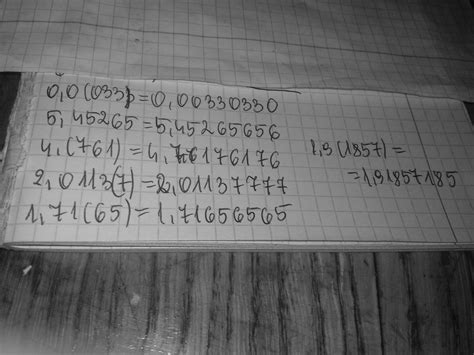 0,0(033)=0,00330330
5,45265=5,45265656
4,(761)=4,76176176
2,0113(7)=2,01137777
1,71(65)=1,71656565
1,3(1857)=
=1,31857185